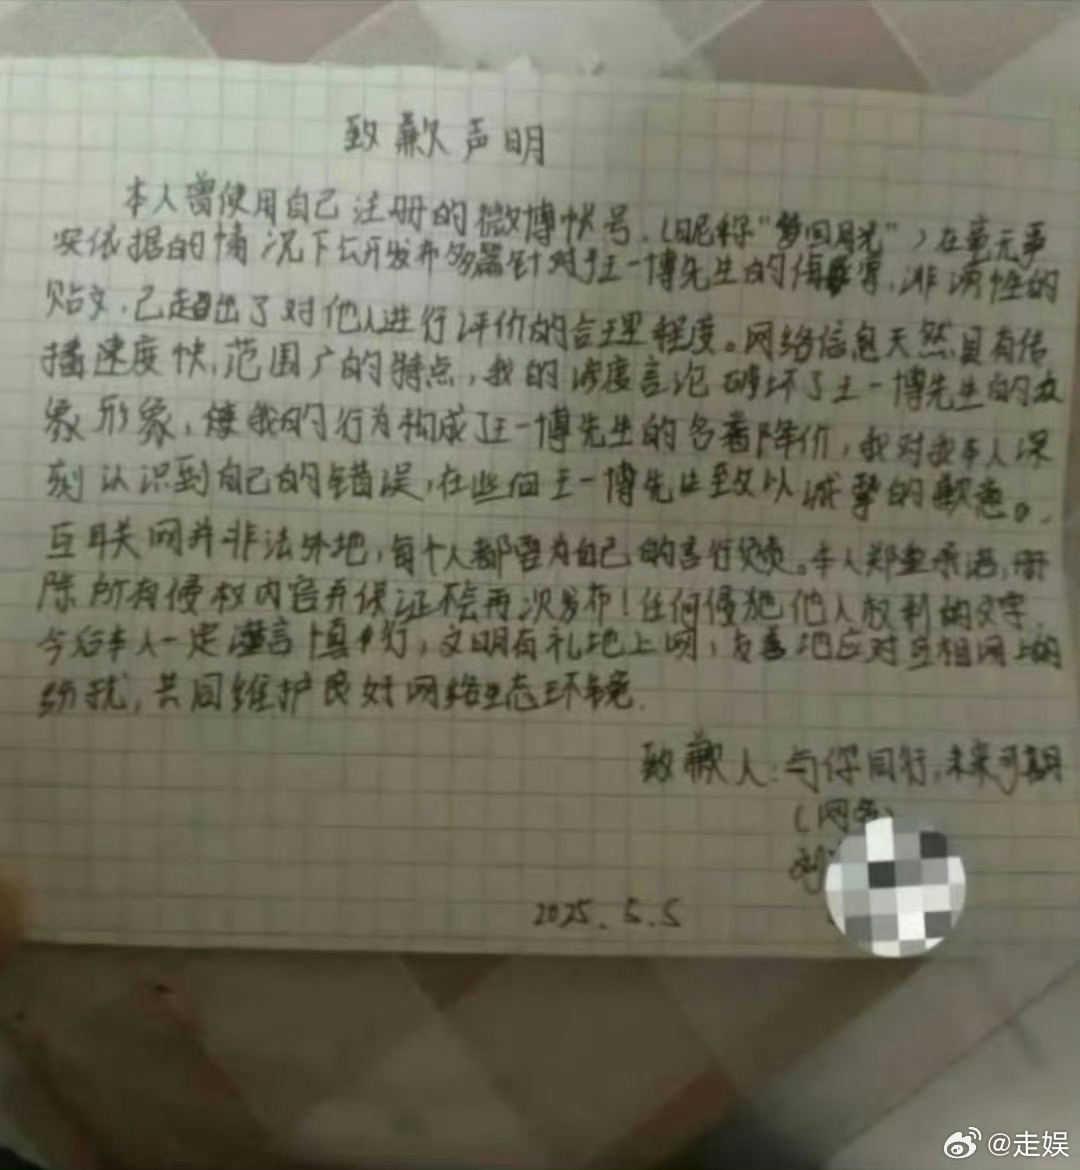 致歉声明
本人曾使用自己注册的微博帐号,(昵称“梦回月光”)在毫无事
实依据的情况下公开发布多篇针对于王一博先生的侮辱,诽谤性的
贴文,已超出了对他人进行评价的合理程度。网络信息天然具有传
播速度快,范围广的特点,我的涉度言论破坏了王一博先生的
象形象,使我的行为构成了王一博先生的名著降价,我对我本人深
刻认识到自己的错误,在此向王一博先生致以诚挚的歉意。
互联网并非法外地,每个人都要为自己的言行负责。本人郑重承诺,册
除所有侵权内容并保证不会再次发布!任何侵犯他人权利的文字,
今后本人一定谨言慎行,文明有礼地上网,友善地应对互相网上的
纷扰,共同维护良好网络生态环境.
致歉人:与你同行,未来可期
(网名)
刘
2025.5.5
@走娱